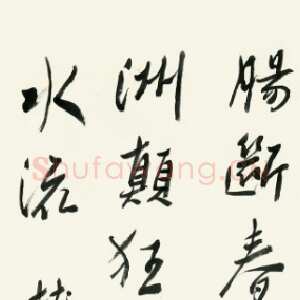 腸斷春
洲顛狂
水流
Shufawang.cn